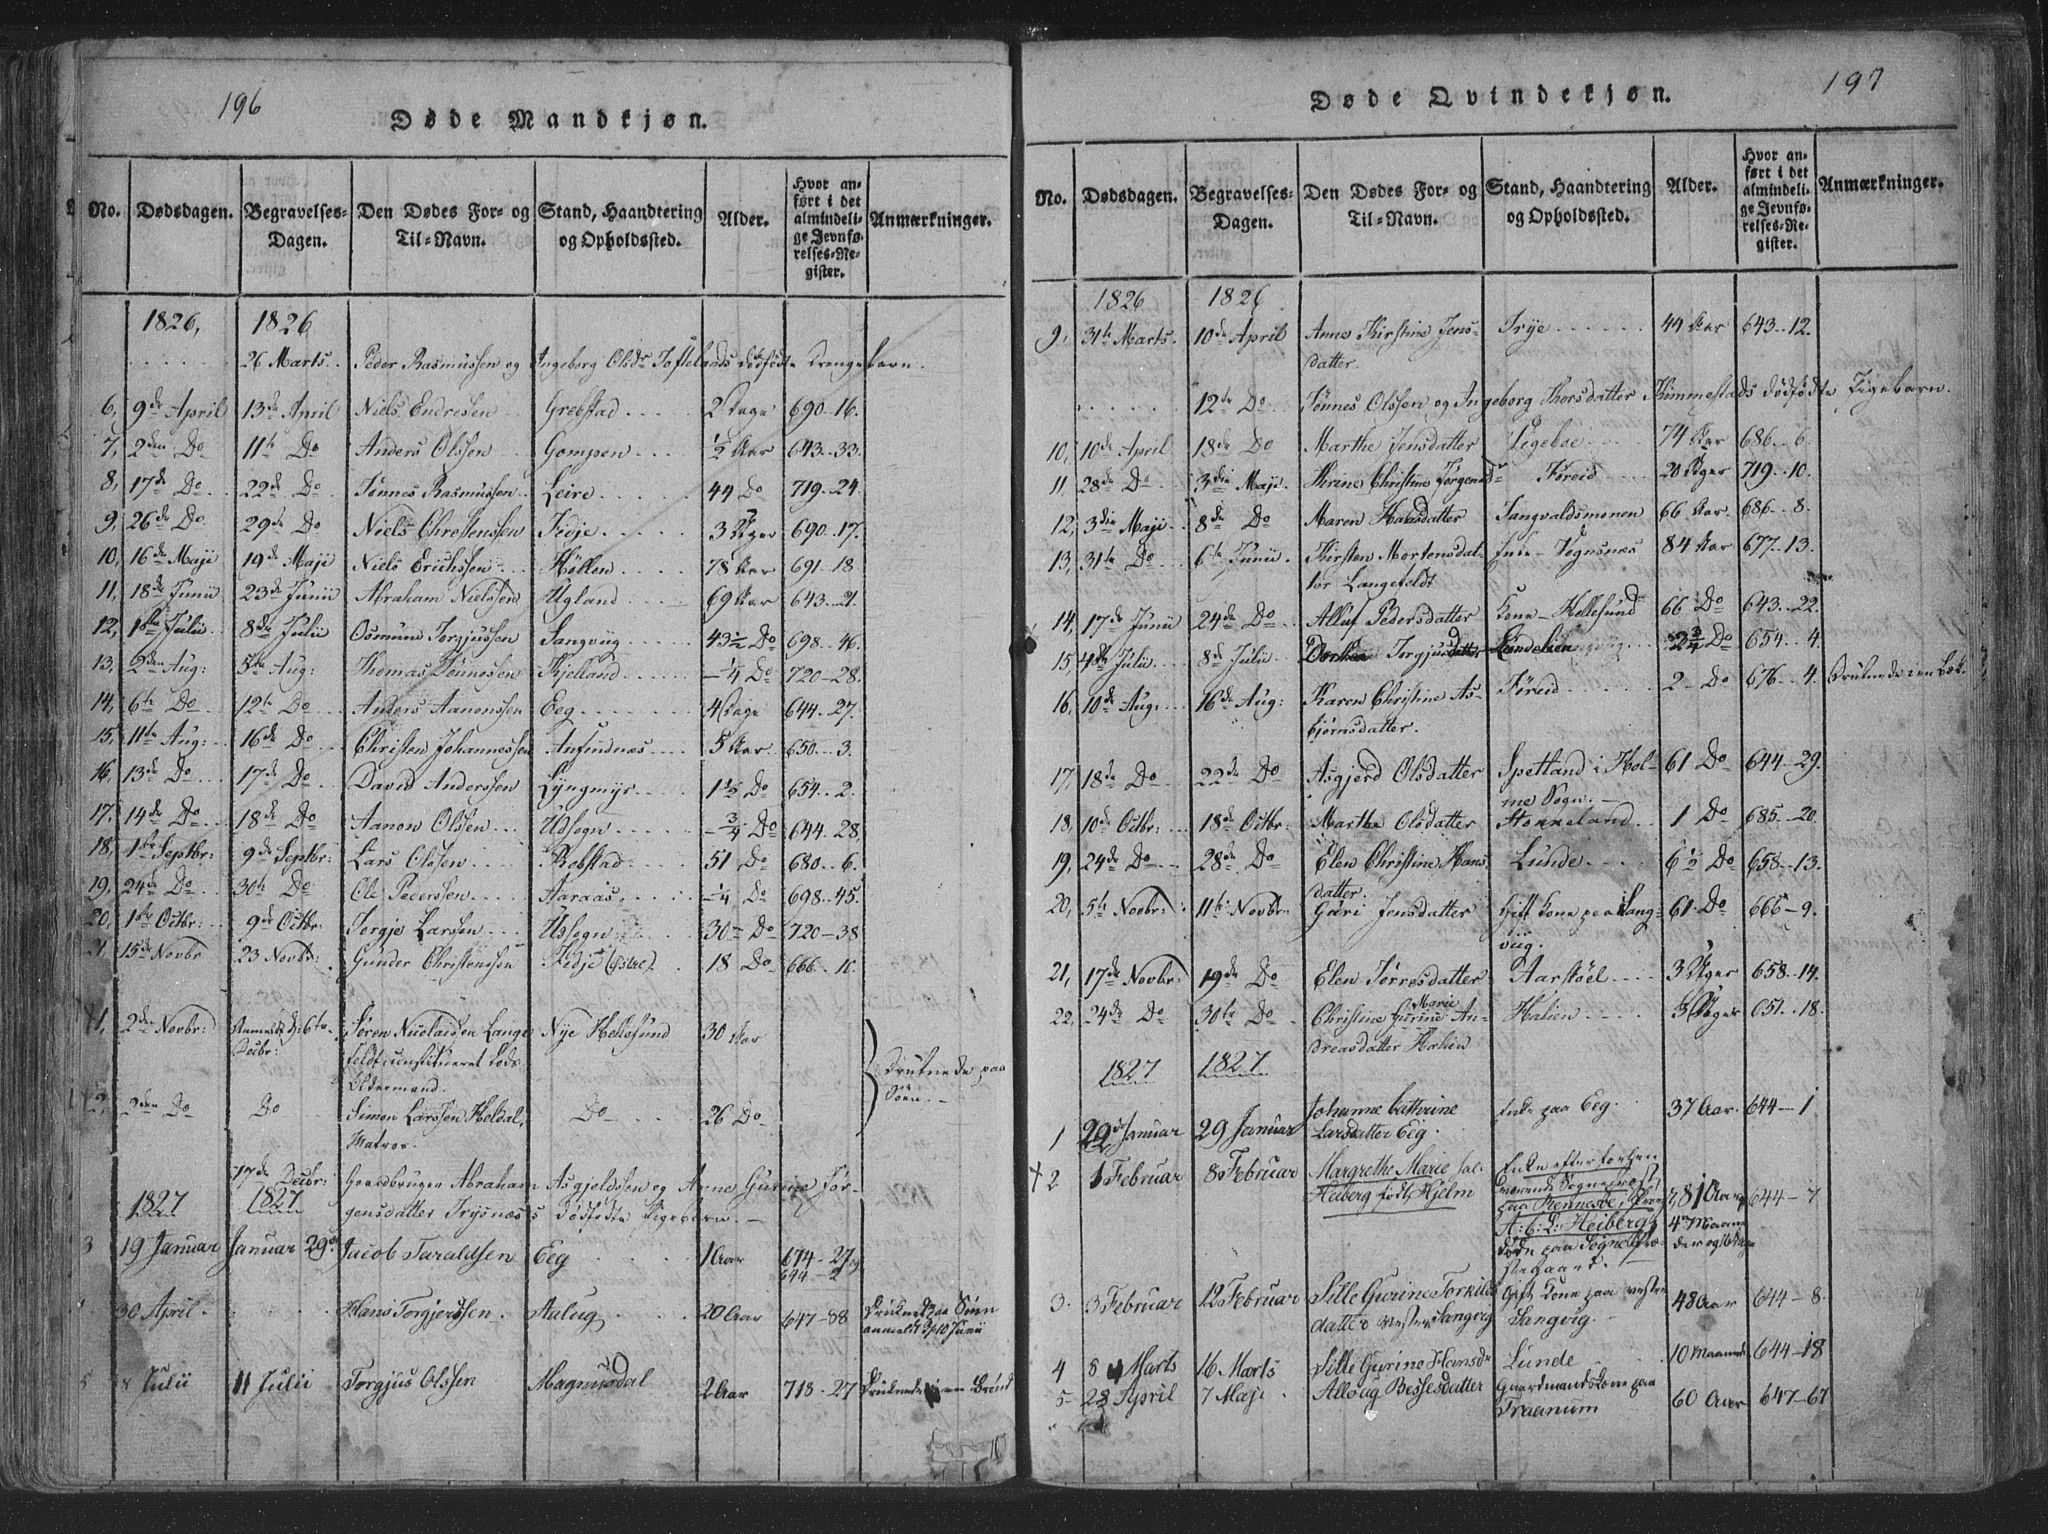 196
Døde Mandkjøn.
No. Dødsdagen. Begravelses-Dagen. Den Dødes For- og Til-Navn. Stand, Haandtering og Opholdssted. Alder. Hvor anført i det almindelige Jevnførelses-Register. Anmærkninger.
1826, 1826
26 Marts. Peder Rasmussen og Ingeborg Olsdr Toftelands dødfødte Drengebarn.
6, 9de April 13de April Niels Endresen Grebstad 2 Dage 690-16.
7, 2den Do 11te Do Anders Olssen Gompen ½ Aar 643-33.
8, 17de Do 22de Do Tønnes Rasmussen Leire 44 Do 719-24.
9, 26de Do 29de Do Niels Christenssen Tidje 3 Uger 690-17.
10, 16de Maji 19de Maji Niels Erichssen Höllen 78 Aar 691-18
11, 18de Junii 23de Junii Abraham Nielssen Ugland 69 Aar 643-21.
12, 1ste Julii 8de Julii Osmund Torgjussen Sangviig 43½ Do 698-46.
13, 2den Aug: 5te Aug: Thomas Tønnesen Kjelland ¼ Do 720-28.
14, 6te Do 12te Do Anders Aanonssen Eeg 4 Dage 644-27.
15, 11te Aug: 16de Do Christen Johannessen Anfindnæs 5 Aar 650-3.
16, 13de Do 17de Do David Anderssen Lyngmyr 1½ Do 654-2.
17, 14de Do 18de Do Aanon Olssen Udsogn ¾ Do 644-28,
18, 1ste Septbr: 9de Septbr: Lars Olssen Rebstad 51 Do 680-6.
19, 24de Do 30te Do Ole Pederssen Aaraas ¼ Do 698-45.
20, 1ste Octbr: 9de Octbr: Torgje Larssen Ussogn 30 Do 720-38
21, 15de Novbr 23 Novbr: Gunder Christenssen Tidje 18 Do 666-10.
1, 2den Novbr: Anmeldt d: 6te Decbr: Søren Nicolaissen Lange- Nye Hellesund 30 Aar
feldt constitueret Lods
Oldermand. Druknede paa Søen.
2, 2den Do Do Simon Larssen Holdal, Do 26 Do
Matros.
17de Decbr: Gaardbruger Abraham Asgjeldssen og Anne Gurine Jør-
1827 1827 gensdatter Trysnæss dødfødte Pigebarn.
3 19 Januar Januar 29de Jacob Taraldsen Eeg 1 Aar 674-27
644-2
30 April Hans Torgjerssen Aalug 20 Aar 647-88 Druknede paa Søen
anmeldt d 10 Junii
5 8 Julii 11 Julii Torgjus Olssen Magnusdal 2 Aar 718-27 Druknede i en Brønd
197
Døde Qvindekjøn.
No. Dødsdagen. Begravelses-Dagen. Den Dødes For- og Til-Navn. Stand, Haandtering og Opholdssted. Alder. Hvor anført i det almindelige Jevnførelses-Register. Anmærkninger.
1826 1826
9, 31te Marts 10de April Anne Kirstine Jens- Trye 44 Aar 643-12.
datter.
12te Do Tønnes Olssen og Ingeborg Thorsdatter Kimmestads dødfødte Pigebarn.
10, 10de April 18de Do Marthe Jensdatter Vigeboe 74 Aar 686-6.
11, 28de Do 3die Maji Thrine Christine Jørgensdr Føreid 20 Uger 719-10.
12, 3die Maji 8de Do Maren Hansdatter Tangvaldsmonen 66 Aar 686-8.
13, 31te Do 6te Junii Kirsten Mortensdat- Enke - Vognsnæs 84 Aar 677-13.
ter Langefeldt
14, 17de Junii 24de Do Alluf Pedersdatter Kone - Hellesund 66 Do 643-22.
15, 4de Julii 8de Julii Dorthea Torgjusdatter Lundelien 2¾ Do 654-4.
16, 10de Aug: 16de Aug: Karen Christine As- Føreid 2 Do 676-4. Druknede i en Bæk
bjørnsdatter.
17, 18de Do 22de Do Asgjerd Olsdatter Spetland i Hol- 61 Do 644-29.
me Sogn.
18, 10de Octbr: 18de Octbr: Marthe Olsdatter Stokkeland 1 Do 685-20.
19, 24de Do 28de Do Elen Christine Hans- Lunde 6½ Do 658-13.
datter.
20, 5te Novbr: 11te Novbr Gûri Jensdatter Gift Kone paa Sang- 61 Do 665-9.
viig.
21, 17de Novbr: 19de Do Elen Tørresdatter Aarstöel 3 Uger 658-14.
22, 24de Do 30te Do Christine Gurine Marie An- Halien 3 Uger 651-18.
dreasdatter Halien
1827 1827
1 29de Januar 29 Januar Johanne Cathrine Enke paa Eeg. 37 Aar. 644-1
Larsdatter Eeg.
+ 2 1 Februar 8 Februar Margrethe Marie sal. Enke efter forhen
Heiberg født Hjelm værende Sognepræst
paa Rennesøe, 81 Aar 644-7
A: C: L: Heiberg 4 Maane-
døde paa Sogne Præ- der og
stegaard.
3. 3 Februar 12 Februar Sille Gurine Torkilds- Gift Kone paa vestre 48 Aar 644-8.
datter vestre Sangvig Sangvig.
4 8 Marts 16 Marts Sille Gurine Hansdr Lunde 10 Maaneder 644-18
5 23 April 7 Maji Alloug Bessesdatter Gaardmandskone paa 60 Aar 647-67
Fraanum